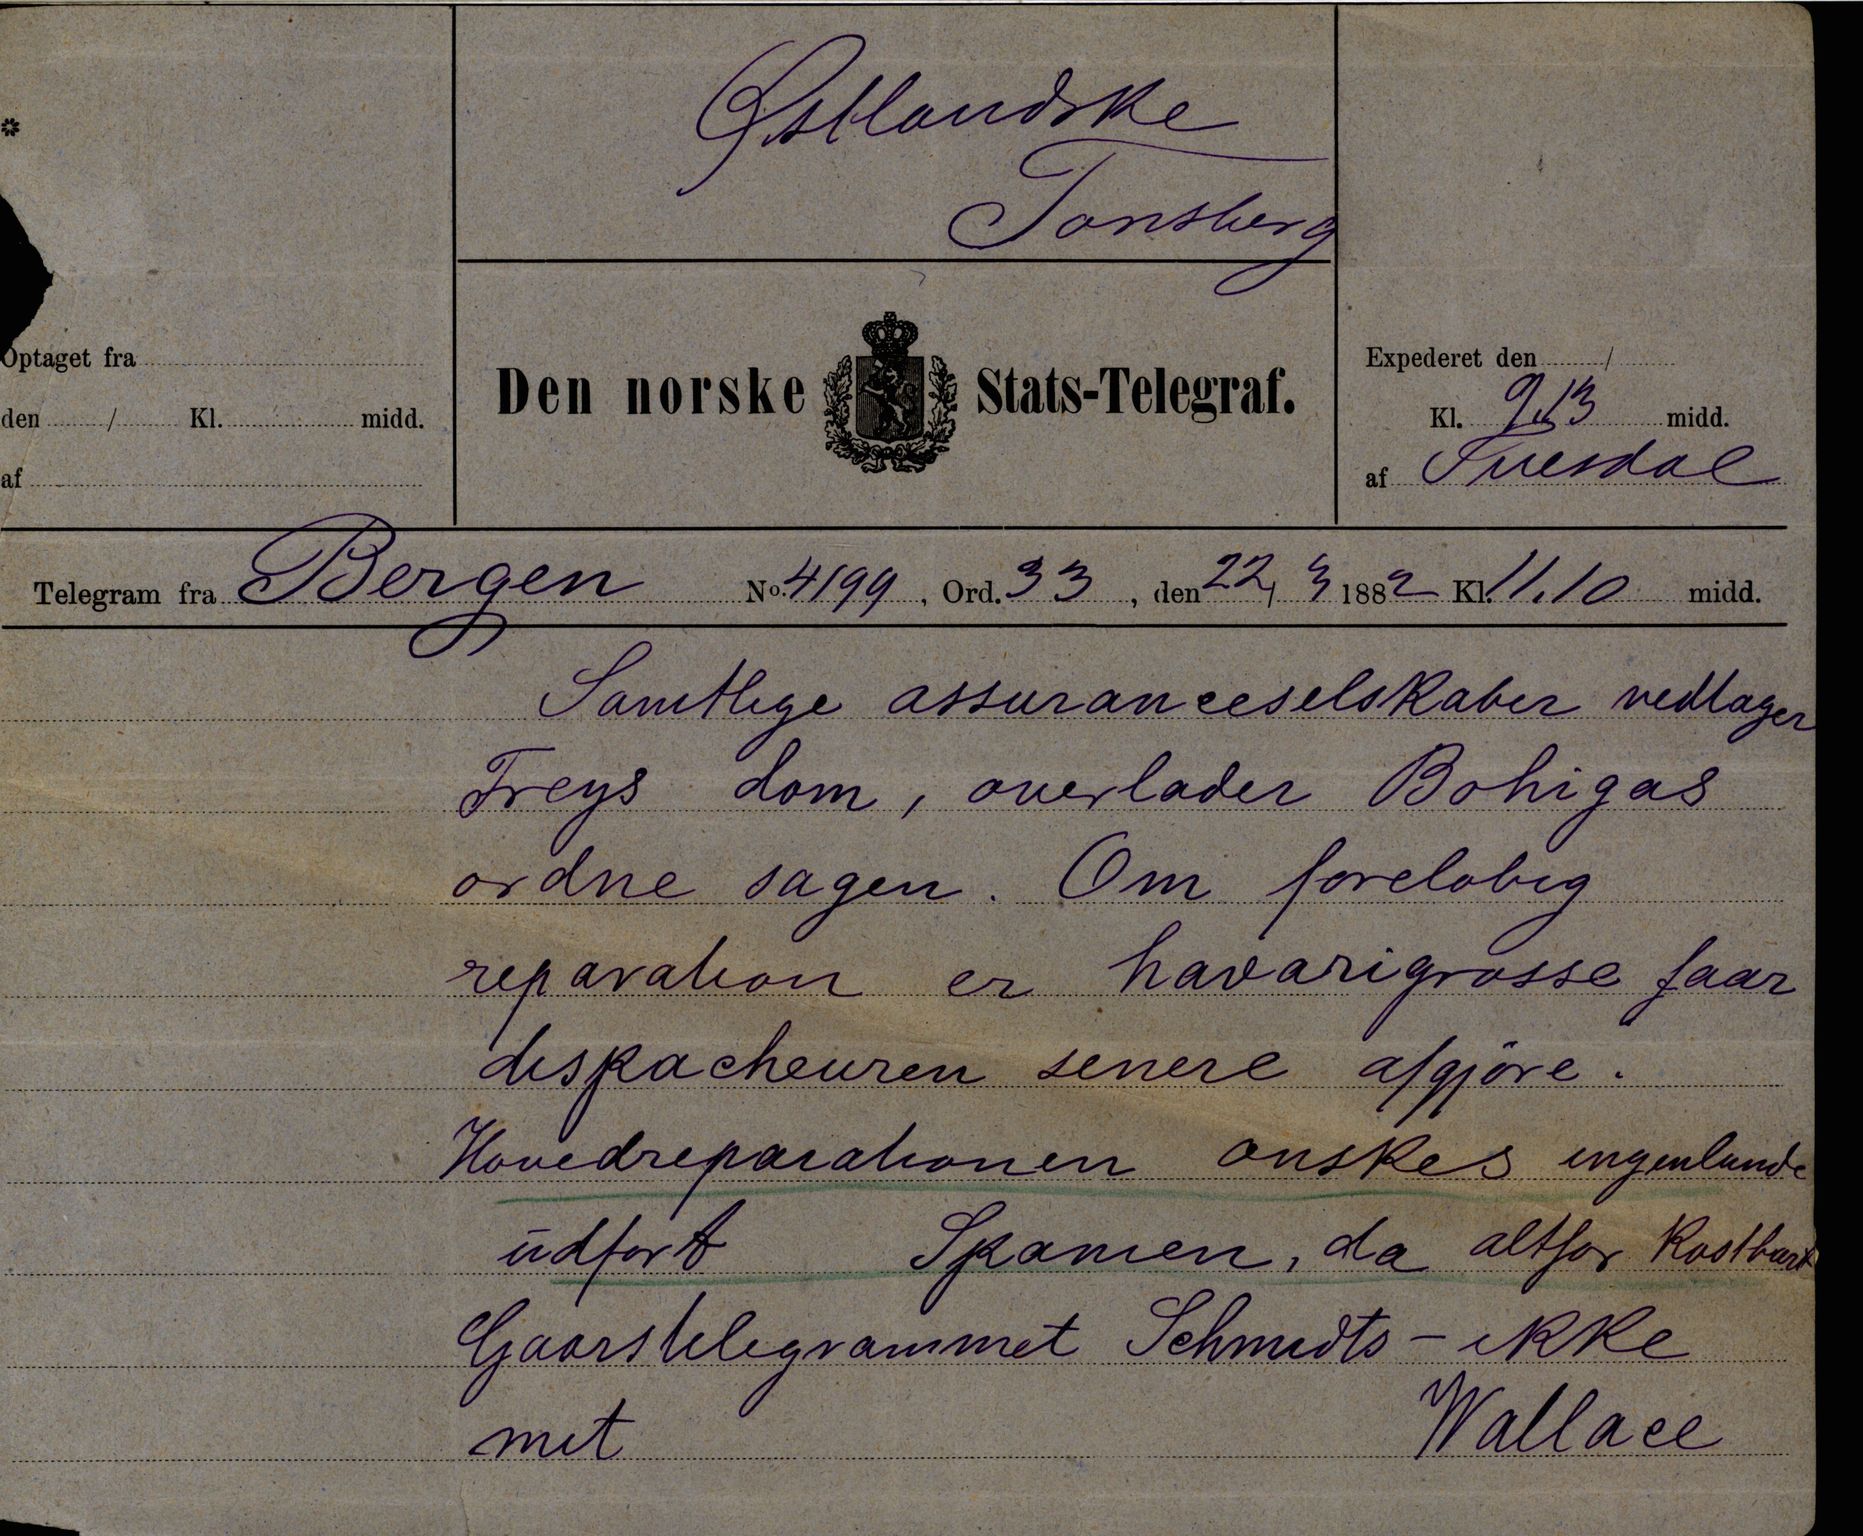 Østlandske
Tonsberg
*
Optaget fra
den / Kl. midd.
af
Den norske Stats-Telegraf.
Expederet den /
Kl. 9.13 midd.
af
Telegram fra Bergen No. 4199, Ord. 33, den 22/3 1882 Kl. 11.10 midd.
Samtlige assuranceselskaber vedtager
Freys dom, overlader Bohigas
ordne sagen. Om forelobig
reparation er havarigrosse faar
dispacheuren senere afgjöre.
Hovedreparationen onskes ingenlunde
udfort Spanien, da altfor kostbart
Gaarstelegrammet Schmidts - ikke
mit Wallace